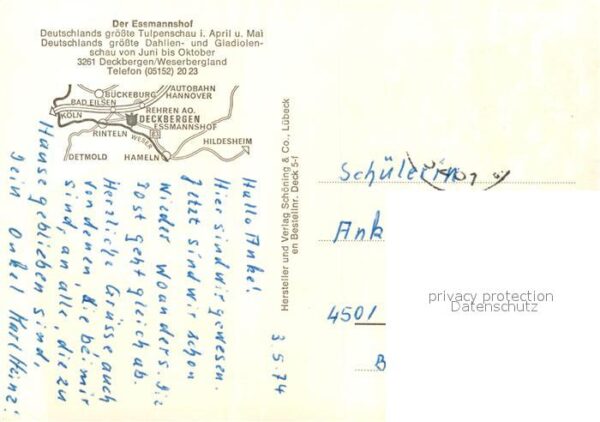 Der Essmannshof
Deutschlands größte Tulpenschau i. April u. Mai
Deutschlands größte Dahlien- und Gladiolen-
schau von Juni bis Oktober
3261 Deckbergen/Weserbergland
Telefon (05152) 20 23
BÜCKEBURG
AUTOBAHN
HANNOVER
BAD EILSEN
KÖLN
REHREN AO.
DECKBERGEN
ESSMANNSHOF
RINTELN
WESER
HILDESHEIM
DETMOLD
HAMELN
Hersteller und Verlag Schöning & Co., Lübeck
en Bestellnr. Deck 5-f
3.5.74
Hallo Anke!
Hier sind wir gewesen.
Jetzt sind wir schon
wieder woanders. Die
Post geht gleich ab.
Herzliche Grüsse auch
von denen, die bei mir
sind, an alle, die zu
Hause geblieben sind,
Dein Onkel Karl Heinz!
Schülerin
Ank
4501
B
privacy protection
Datenschutz